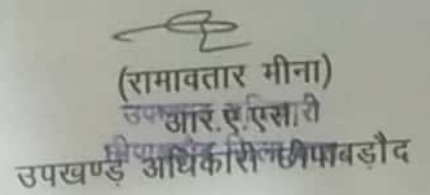 (रामावतार मीना)
आर.ए.एस.
उपखण्ड अधिकारी छीपाबड़ौद